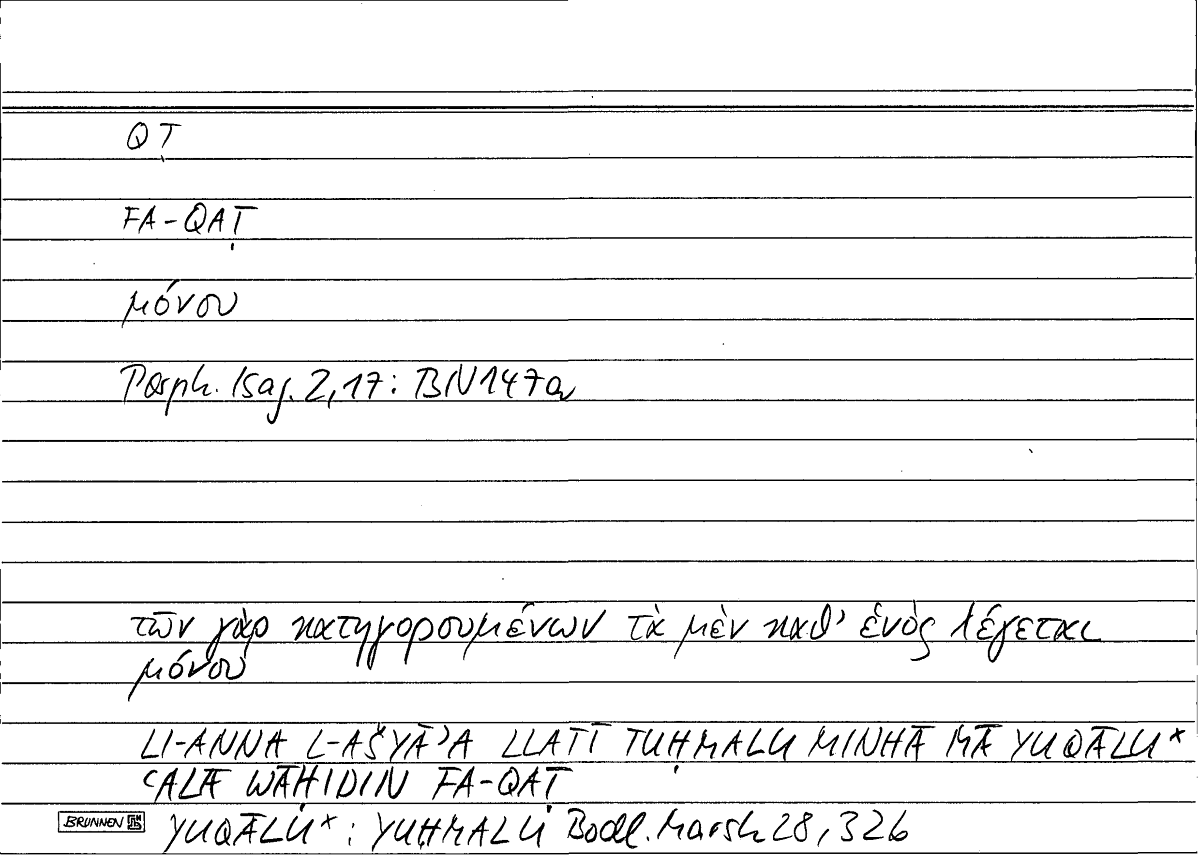 QṬ
FA-QAṬ
μόνου
Porph. Isag. 2,17: BN 147a
τῶν γὰρ κατηγορουμένων τὰ μὲν καθ' ἑνὸς λέγεται
μόνου
LI-ANNA L-AŠYĀʾA LLATĪ TUḤMALU MINHĀ MĀ YUQĀLU*
ʿALĀ WĀḤIDIN FA-QAṬ
BRUNNEN YUQĀLU* : YUḤMALU Bodl. Marsh 28, 326